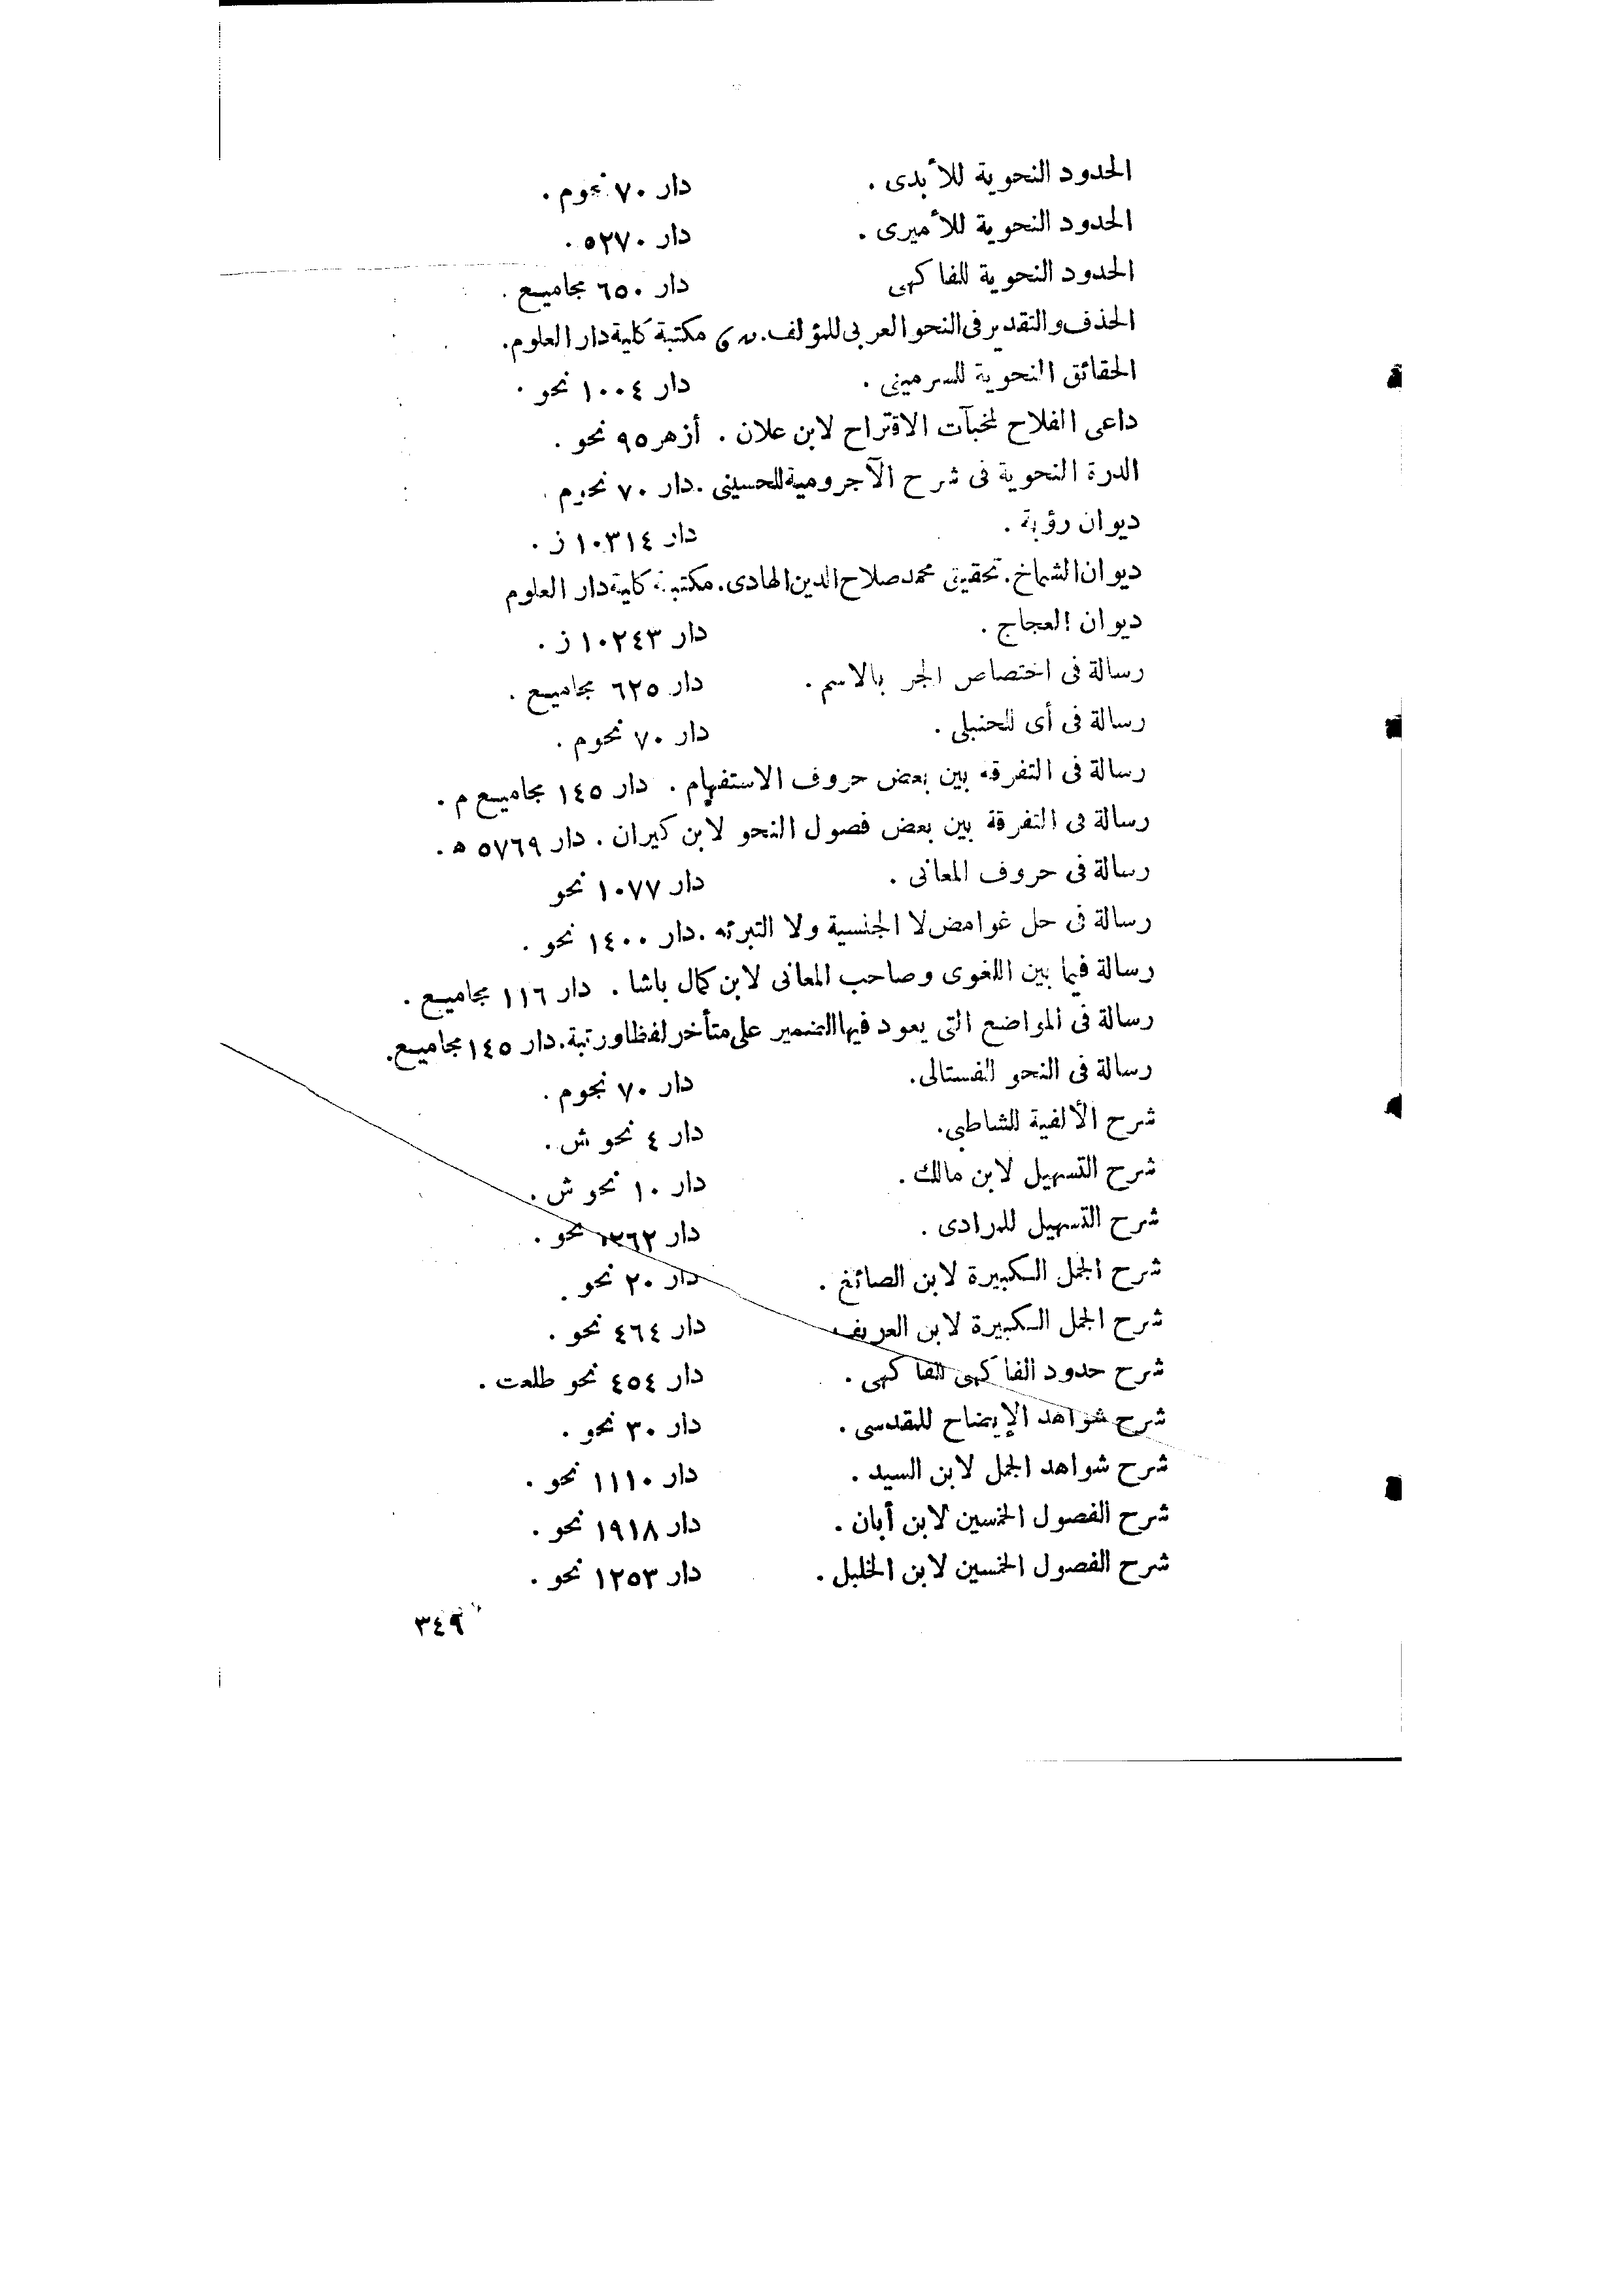 الحدود النحوية للأبدى . دار ٧٠ نحوم .
الحدود النحوية للأميرى . دار ٥٢٧٠ .
الحدود النحوية للفاكهى دار ٦٥٠ مجاميع .
الحذف والتقدير فى النحو العربى للمؤلف . مكتبة كلية دار العلوم .
الحقائق النحوية للسرمينى . دار ١٠٠٤ نحو .
داعى الفلاح لمخبآت الاقتراح لابن علان . أزهر ٩٥ نحو .
الدرة النحوية فى شرح الآجرومية للحسينى . دار ٧٠ نحوم
ديوان رؤبة . دار ١٠٣١٤ ز .
ديوان الشماخ . تحقيق محمد صلاح الدين الهادى . مكتبة كلية دار العلوم
ديوان العجاج . دار ١٠٢٤٣ ز .
رسالة فى اختصاص الجر بالاسم . دار ٦٢٥ مجاميع .
رسالة فى أى للحنبلى . دار ٧٠ نحوم .
رسالة فى التفرقة بين بعض حروف الاستفهام . دار ١٤٥ مجاميع م .
رسالة فى التفرقة بين بعض فصول النحو لابن كيران . دار ٥٧٦٩ ه .
رسالة فى حروف المعانى . دار ١٠٧٧ نحو
رسالة فى حل غوامض لا الجنسية ولا التبرئه . دار ١٤٠٠ نحو .
رسالة فيما بين اللغوى وصاحب المعانى لابن كمال باشا . دار ١١٦ مجاميع .
رسالة فى المواضع التى يعود فيها الضمير على متأخر لفظا ورتبة . دار ١٤٥ مجاميع .
رسالة فى النحو للفستالى . دار ٧٠ نجوم .
شرح الألفية للشاطبى . دار ٤ نحو ش .
شرح التسهيل لابن مالك . دار ١٠ نحو ش .
شرح التسهيل للمرادى . دار ١٢٦٢ نحو .
شرح الجمل الكبيرة لابن الصائغ . دار ٢٠ نحو .
شرح الجمل الكبيرة لابن العريف دار ٤٦٤ نحو .
شرح حدود الفاكهى للفاكهى . دار ٤٥٤ نحو طلعت .
شرح شواهد الإيضاح للمقدسى . دار ٣٠ نحو .
شرح شواهد الجمل لابن السيد . دار ١١١٠ نحو .
شرح الفصول الخمسين لابن أبان . دار ١٩١٨ نحو .
شرح الفصول الخمسين لابن الخليل . دار ١٢٥٣ نحو .
٣٤٩